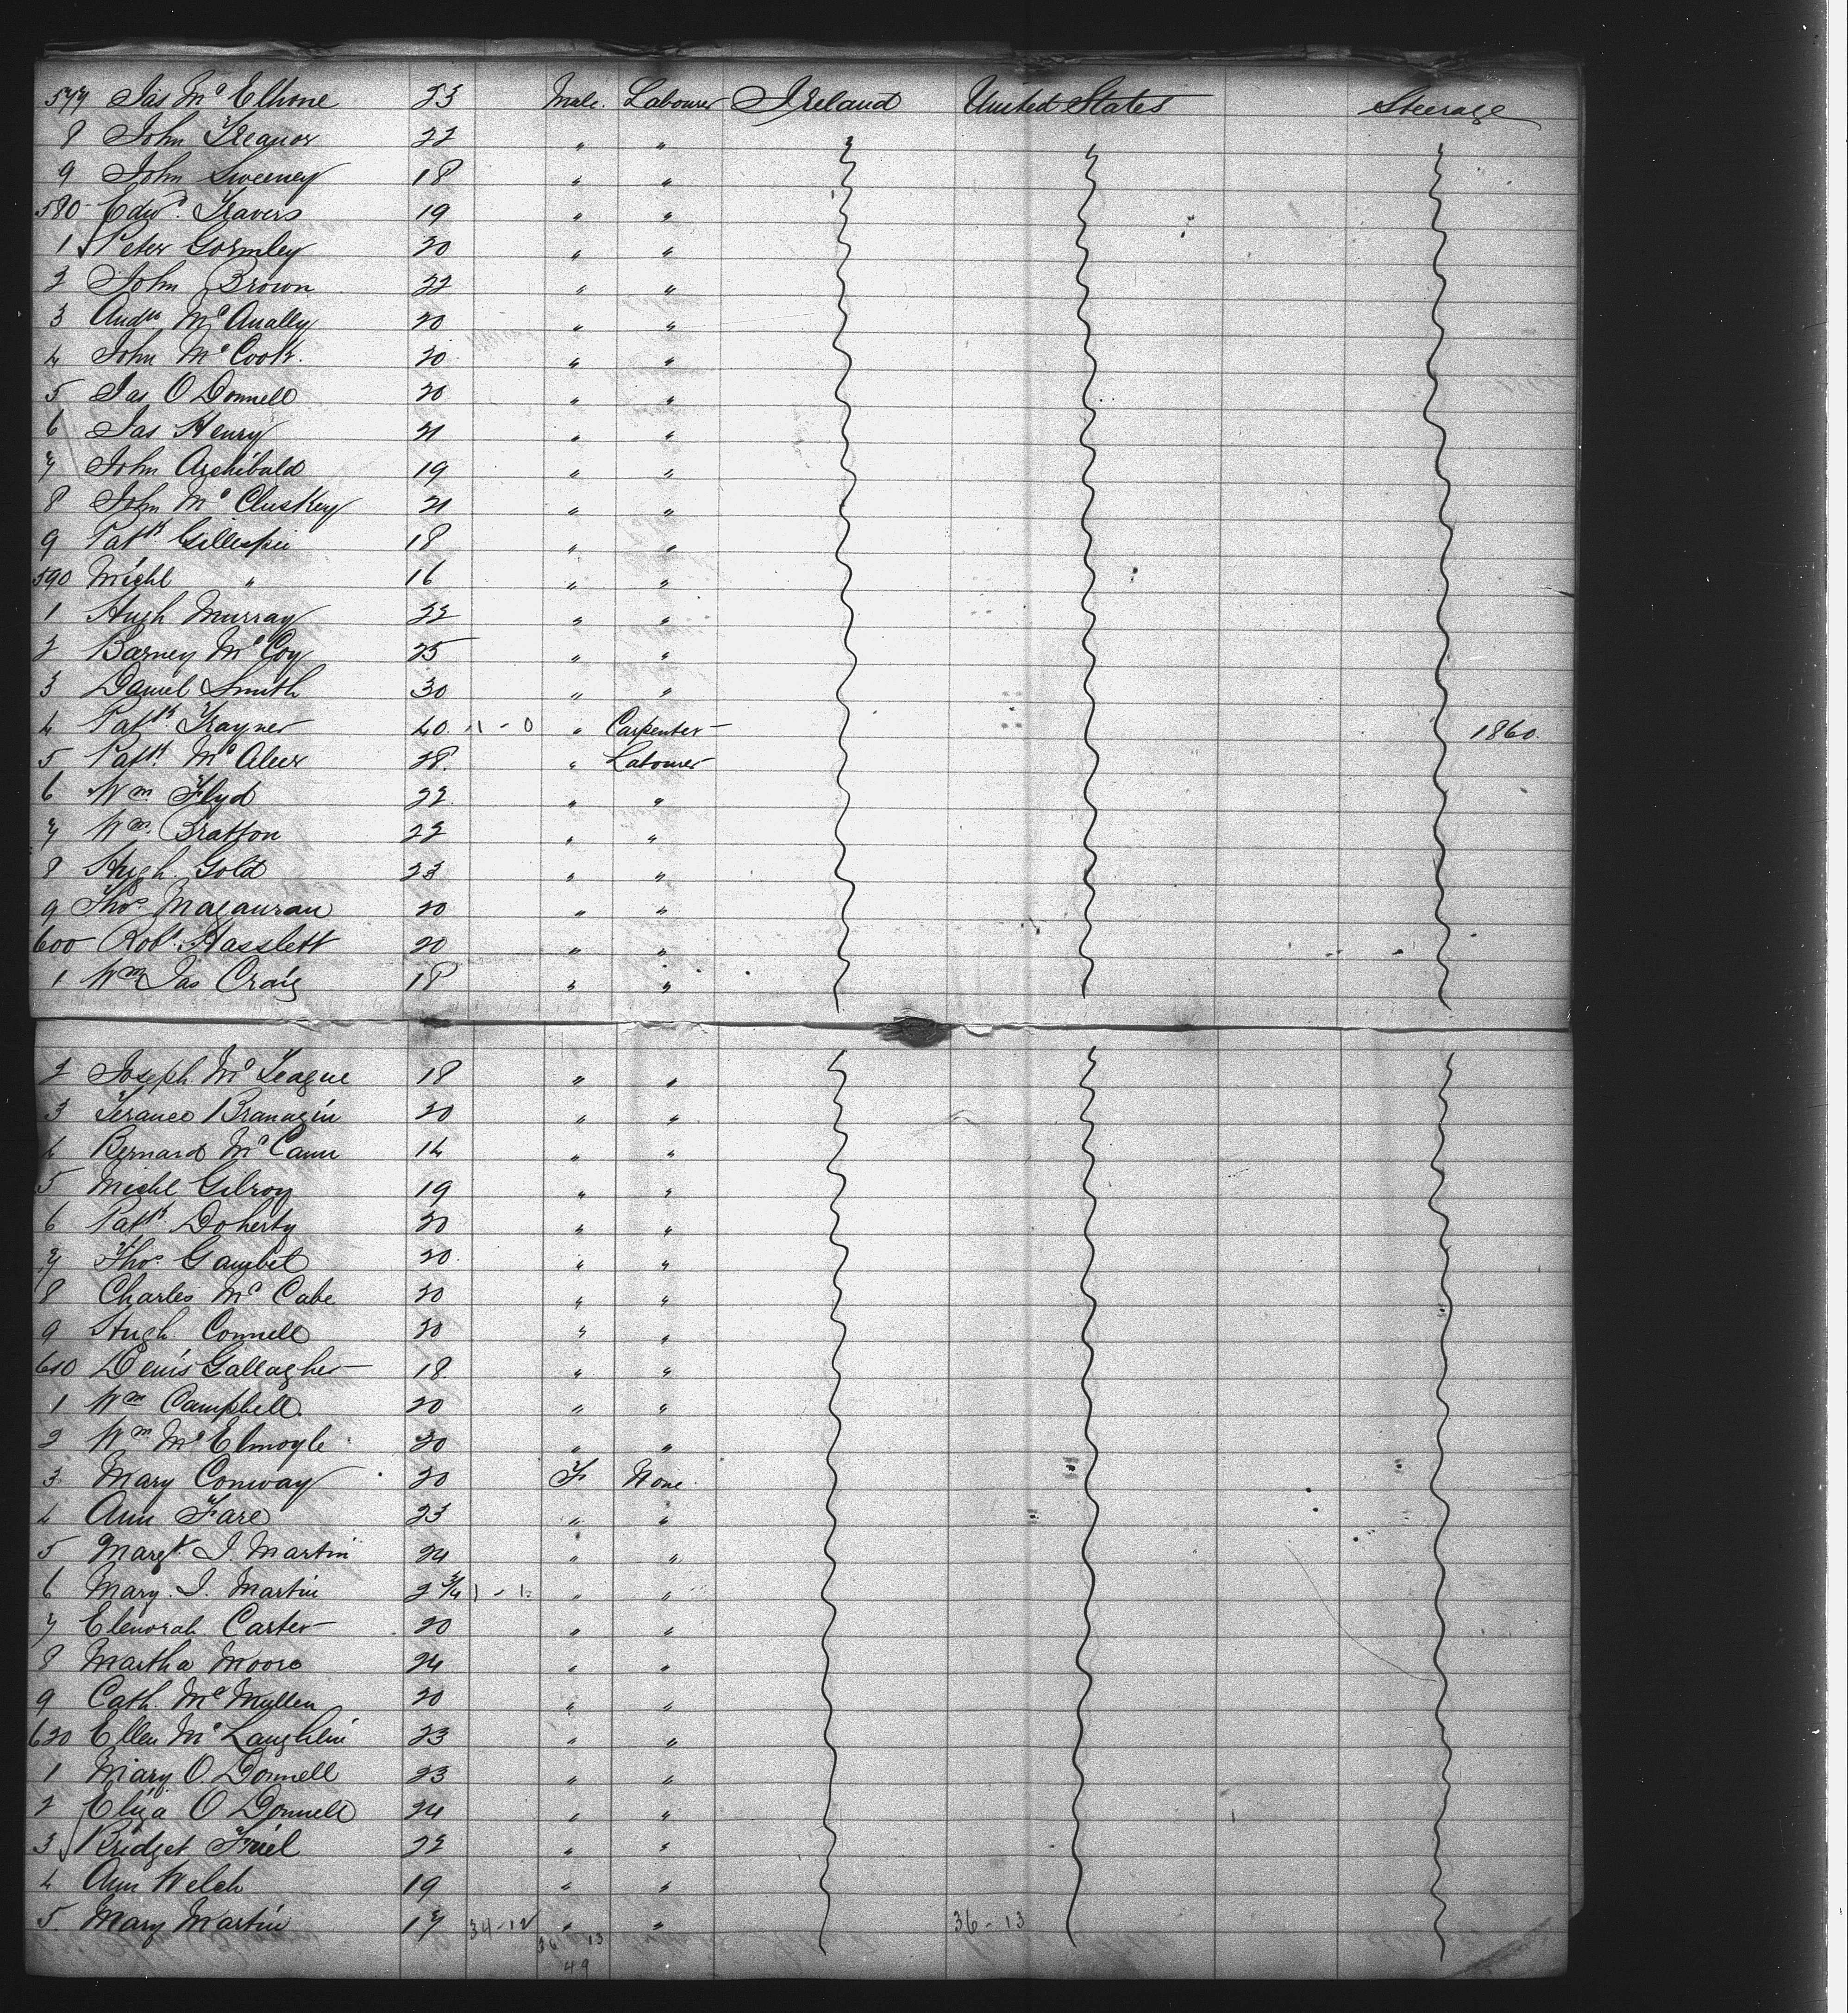 577 Jas Mc Elhone 23 Male. Labourer Ireland United States Steerage
8 John Treanor 22 " "
9 John Sweeney 18 " "
580 Edwd. Travers 19 " "
1 Peter Gormley 20 " "
2 John Brown 22 " "
3 Andw Mc Anally 20 " "
4 John Mc Cook. 20 " "
5 Jas O Donnell 20 " "
6 Jas Henry 21 " "
7 John Archibald 19 " "
8 John Mc Cluskey 21 " "
9 Patk Gillespie 18 " "
590 Michl " 16 " "
1 Hugh Murray 22 " "
2 Barney Mc Coy 25 " "
3 Daniel Smith 30 " "
4 Patk. Trayner 40. 1 - 0 " Carpenter 1860.
5 Patk Mc Aleer 28. " Labourer
6 Wm. Flyd 22. " "
7 Wm. Bratton 22 " "
8 Hugh. Gold 23 " "
9 Thos. Magauran 20 " "
600 Robt. Hasslett 20 " "
1 Wm Jas Craig 18 " "
2 Joseph Mc Teague 18 " "
3 Terance Branagin 20 " "
4 Bernard Mc Cann 14 " "
5 Michl Gilroy 19 " "
6 Patk. Doherty 20 " "
7 Thos. Gambel 20. " "
8 Charles Mc Cabe 20 " "
9 Hugh. Connell 20 " "
610 Denis Gallagher 18. " "
1 Wm Campbell. 20 " "
2 Wm Mc Elmoyle 20 " "
3 Mary Conway 20 F None.
4 Ann Fare 23 " "
5 Margt. J. Martin 24 " "
6 Mary. J. Martin 2 3/4 1 - 1. " "
7 Elenorah Carter 20 " "
8 Martha Moore 24 " "
9 Cath. Mc Mullen 20 " "
620 Ellen Mc Laughlin 23 " "
1 Mary O. Donnell 23 " "
2 Eliza O Donnell 24 " "
3 Bridget Friel 22 " "
4 Ann Welch 19 " "
5. Mary Martin 17 34-12 " " 36-13
36 13
49